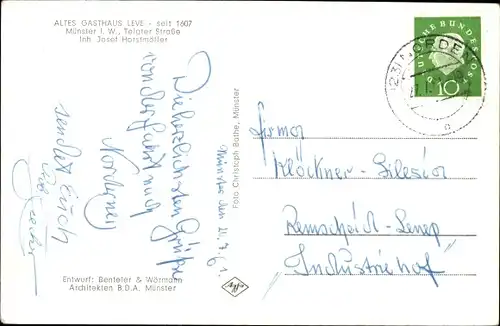 ALTES GASTHAUS LEVE - seit 1607
Münster i. W., Telgter Straße
Inh. Josef Horstmöller
Die herzlichsten Grüße
von der Fahrt nach
Norderney
sendet Euch
Münster den 21.7.61.
Foto: Christoph Bathe, Münster
Entwurf: Benteler & Wörmann
Architekten B.D.A. Münster
DEUTSCHE BUNDESPOST
10
(23) NORDEN
Firma
Klöckner-
Remscheid-Lennep
Industriehof